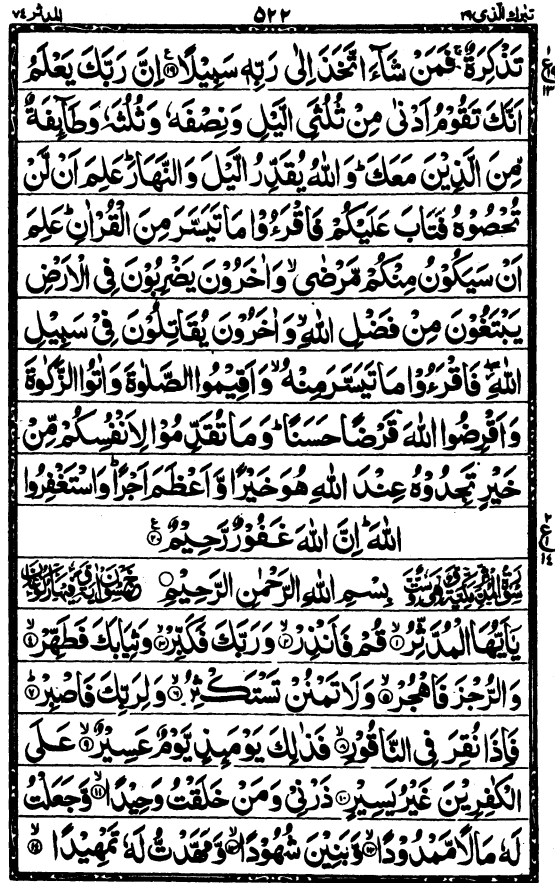 تبرك الذی ۲۹ ۵۲۲ المدثر ۷۴
تَذْكِرَةٌ ۚ فَمَنْ شَآءَ اتَّخَذَ اِلٰى رَبِّهٖ سَبِيْلًا ﴿۱۹﴾ اِنَّ رَبَّكَ يَعْلَمُ
اَنَّكَ تَقُوْمُ اَدْنٰى مِنْ ثُلُثَىِ الَّيْلِ وَنِصْفَهٗ وَثُلُثَهٗ وَطَآئِفَةٌ
مِّنَ الَّذِيْنَ مَعَكَ ؕ وَاللّٰهُ يُقَدِّرُ الَّيْلَ وَالنَّهَارَ ؕ عَلِمَ اَنْ لَّنْ
تُحْصُوْهُ فَتَابَ عَلَيْكُمْ فَاقْرَءُوْا مَا تَيَسَّرَ مِنَ الْقُرْاٰنِ ؕ عَلِمَ
اَنْ سَيَكُوْنُ مِنْكُمْ مَّرْضٰى ۙ وَاٰخَرُوْنَ يَضْرِبُوْنَ فِى الْاَرْضِ
يَبْتَغُوْنَ مِنْ فَضْلِ اللّٰهِ ۙ وَاٰخَرُوْنَ يُقَاتِلُوْنَ فِىْ سَبِيْلِ
اللّٰهِ ۖ فَاقْرَءُوْا مَا تَيَسَّرَ مِنْهُ ۙ وَاَقِيْمُوا الصَّلٰوةَ وَاٰتُوا الزَّكٰوةَ
وَاَقْرِضُوا اللّٰهَ قَرْضًا حَسَنًا ؕ وَمَا تُقَدِّمُوْا لِاَنْفُسِكُمْ مِّنْ
خَيْرٍ تَجِدُوْهُ عِنْدَ اللّٰهِ هُوَ خَيْرًا وَّاَعْظَمَ اَجْرًا ؕ وَاسْتَغْفِرُوا
اللّٰهَ ؕ اِنَّ اللّٰهَ غَفُوْرٌ رَّحِيْمٌ ﴿۲۰﴾
بِسْمِ اللّٰهِ الرَّحْمٰنِ الرَّحِيْمِ
يٰۤاَيُّهَا الْمُدَّثِّرُ ﴿۱﴾ قُمْ فَاَنْذِرْ ﴿۲﴾ وَرَبَّكَ فَكَبِّرْ ﴿۳﴾ وَثِيَابَكَ فَطَهِّرْ ﴿۴﴾
وَالرُّجْزَ فَاهْجُرْ ﴿۵﴾ وَلَا تَمْنُنْ تَسْتَكْثِرُ ﴿۶﴾ وَلِرَبِّكَ فَاصْبِرْ ﴿۷﴾
فَاِذَا نُقِرَ فِى النَّاقُوْرِ ﴿۸﴾ فَذٰلِكَ يَوْمَئِذٍ يَّوْمٌ عَسِيْرٌ ﴿۹﴾ عَلَى
الْكٰفِرِيْنَ غَيْرُ يَسِيْرٍ ﴿۱۰﴾ ذَرْنِىْ وَمَنْ خَلَقْتُ وَحِيْدًا ﴿۱۱﴾ وَّجَعَلْتُ
لَهٗ مَالًا مَّمْدُوْدًا ﴿۱۲﴾ وَّبَنِيْنَ شُهُوْدًا ﴿۱۳﴾ وَّمَهَّدْتُّ لَهٗ تَمْهِيْدًا ﴿۱۴﴾